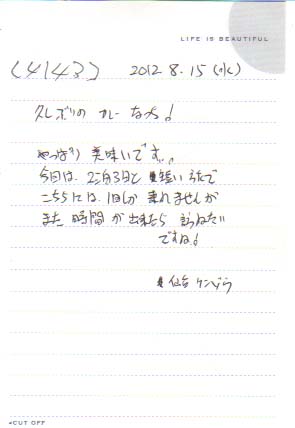 LIFE IS BEAUTIFUL
(4143) 2012 8.15 (水)
久しぶりの カレーなっち!
やっぱり 美味いです。
今回は、2泊3日と 短いうたで
こちらには、1回しか 来れませんが
また 時間が出来たら 訪ねたい
ですね!
仙台 ケンぞう
CUT OFF